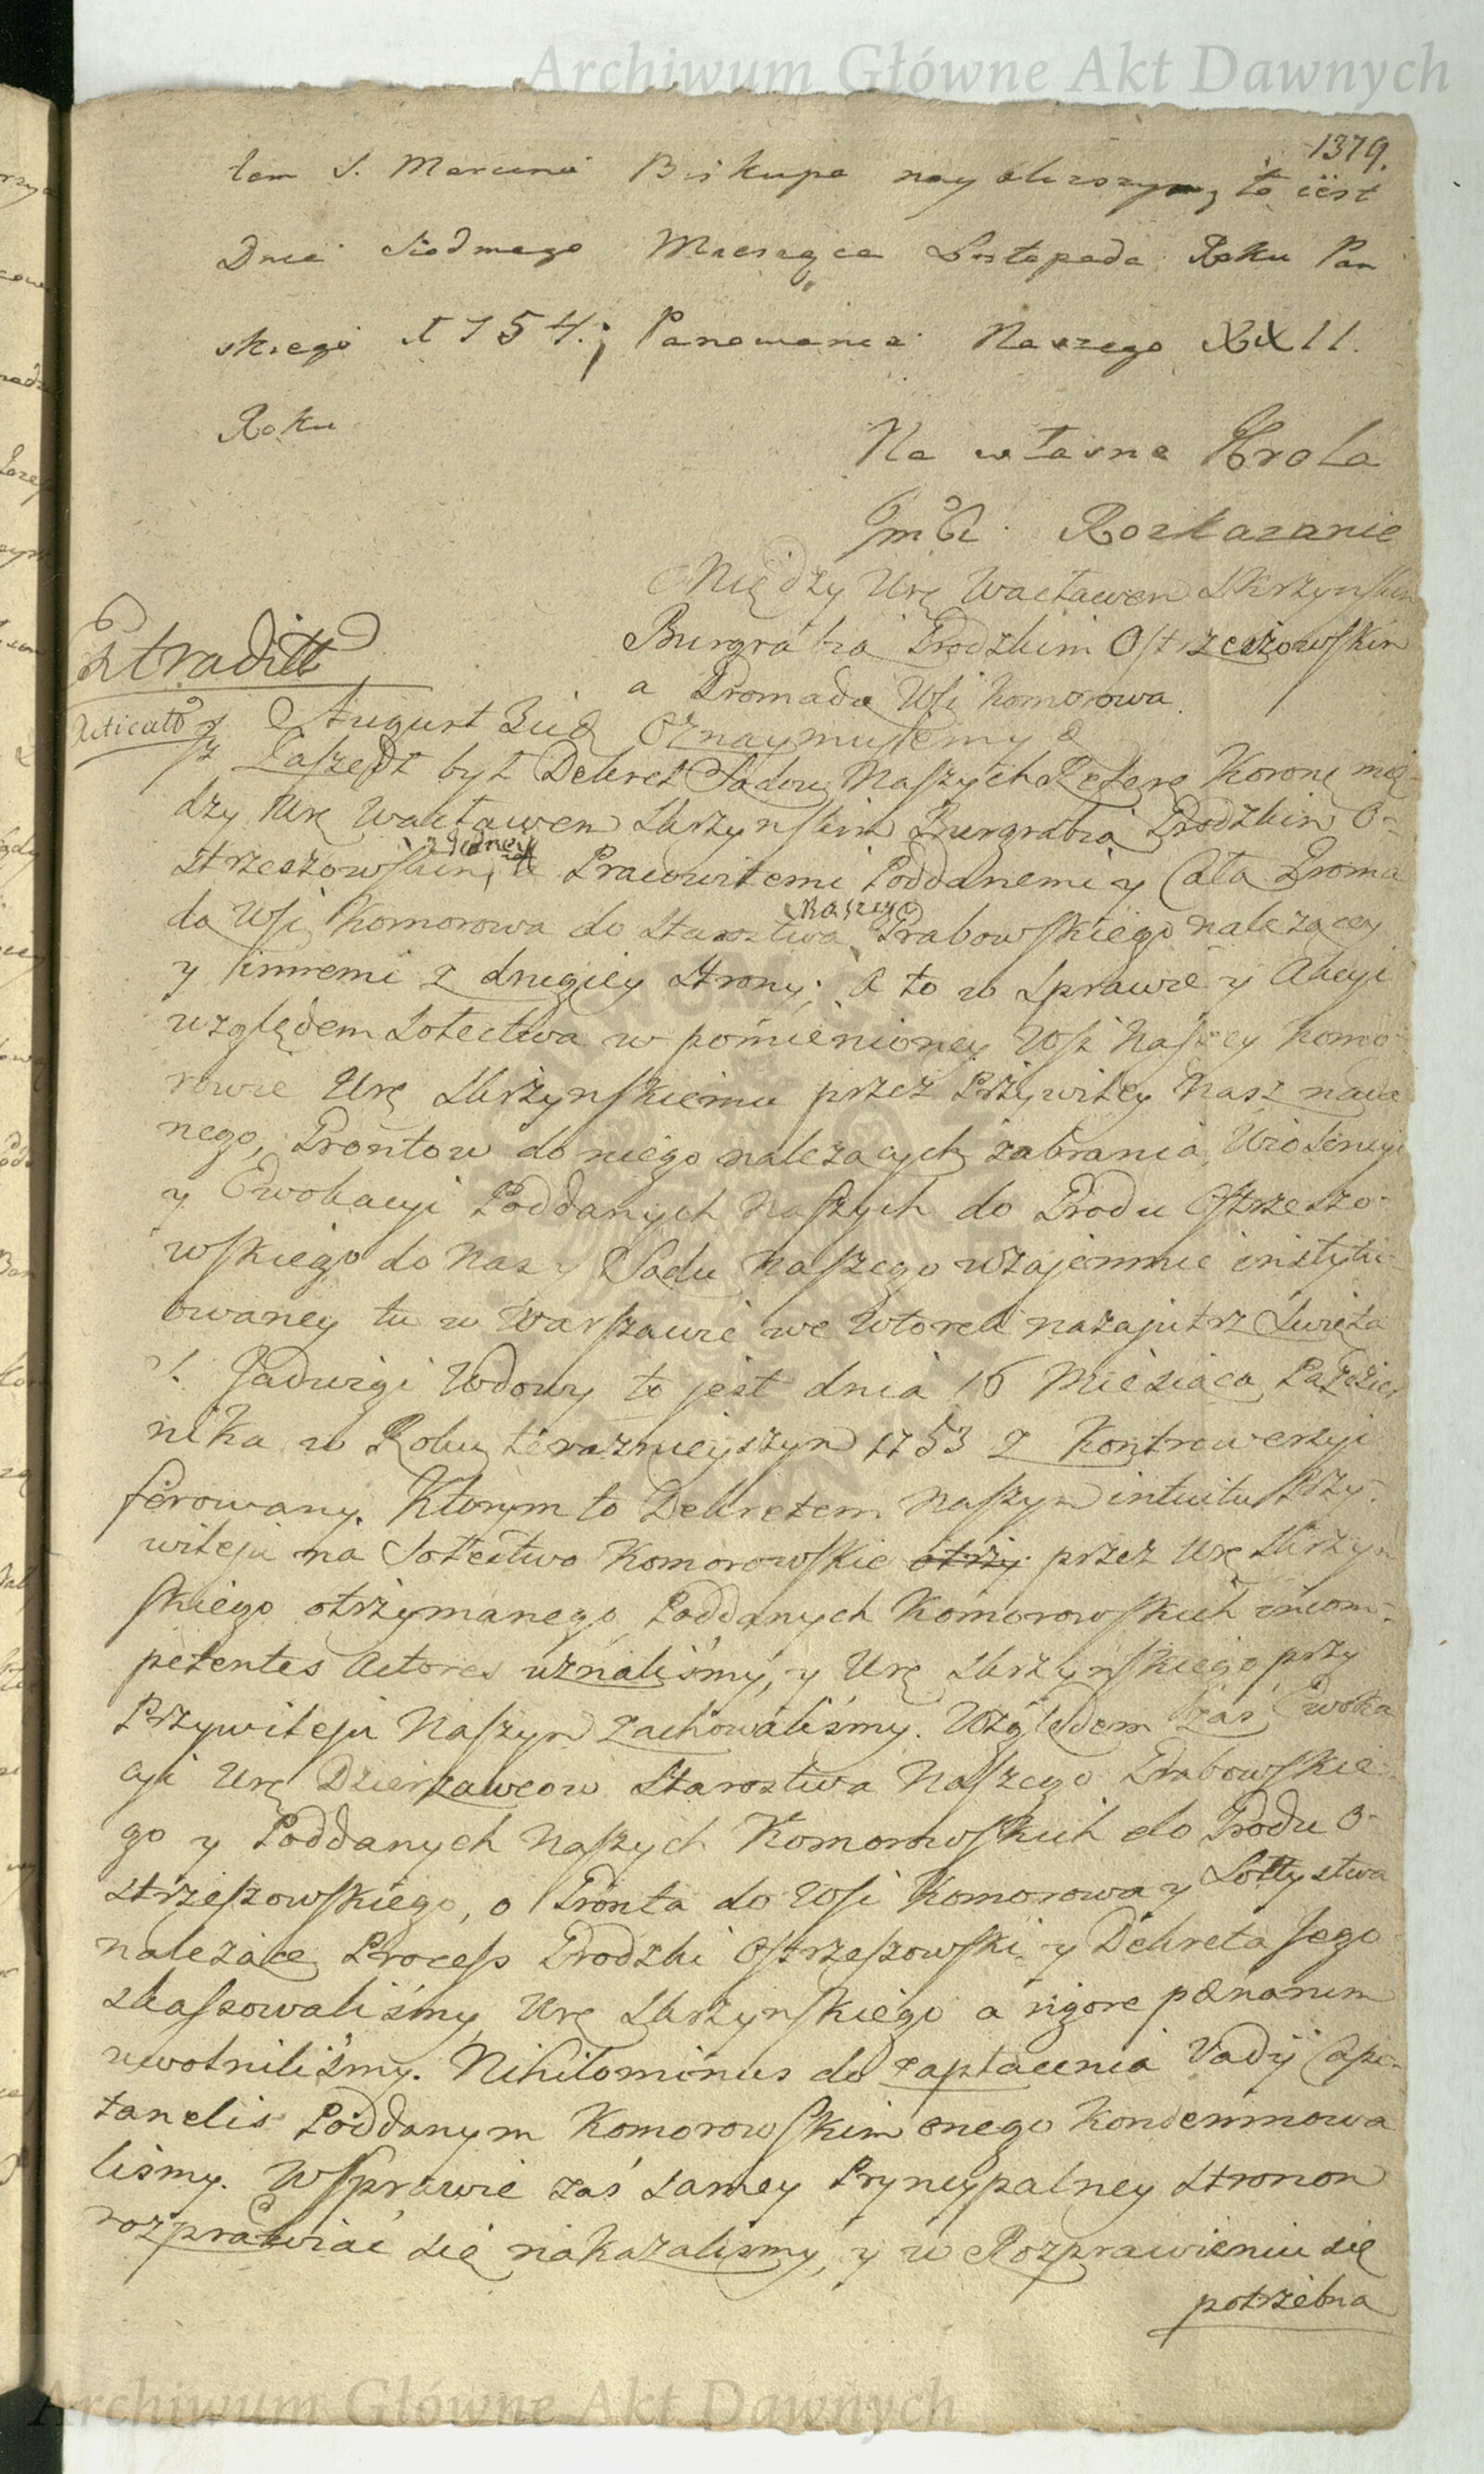 Archiwum Główne Akt Dawnych
1379.
tem S. Marcina Biskupa nayblizszym, to iest
Dnia Siodmego Miesząca Listopada Roku Pan
skiego 1754; Panowania Naszego XXII.
Roku
Na własne Krola
Jmci Rozkazanie
Między Urę Wacławem Skrzynskim
Burgrabią Grodzkim Ostrzeszowskim
a Gromadą Wsi Komorowa.
Extradit
August III Oznaymuiemy
Iż Zaszedł był Dekret Sądow Naszych Referę Koronę mię-
dzy Urę Wacławem Skrzynskim Burgrabią Grodzkim O-
strzeszowskim, z iedney a Pracowitemi Poddanemi y Całą Groma
dą Wsi Komorowa do Starostwa Naszego Grabowskiego nalezącey
y innemi z drugiey strony; a to w sprawie y Akcyi
względem Sołectwa w pomienioney Wsi Naszey Komo-
rowie Urę Skrzynskiemu przez Przywiley Nasz nada
nego, Grontow do niego nalezących zabrania, Wiolencyi
y Ewokacyi Poddanych Naszych do Grodu Ostrzeszo-
wskiego do Nas y Sądu Naszego wzajemnie instytu-
owaney tu w Warszawie we Wtorek nazajutrz Święta
S. Jadwigi Wdowy to jest dnia 16 Miesiąca Pazdzier
nika w Roku teraznieyszym 1753 z Kontrowersyi
ferowany. Ktorym to Dekretem Naszym intuitu Przy-
wileju na Sołectwo Komorowskie otrzy przez Urę Skrzyn
skiego otrzymanego, Poddanych Komorowskich incom-
petentes Actores uznaliśmy, y Urę Skrzynskiego przy
Przywileju Naszym zachowaliśmy. Względem zaś Ewoka
cyi Urę Dzierzawcow Starostwa Naszego Grabowskie-
go y Poddanych Naszych Komorowskich do Grodu O-
strzeszowskiego, o Gronta do Wsi Komorowa y Sołtystwa
nalezące Process Grodzki Ostrzeszowski y Dekreta Jego
skassowaliśmy, Urę Skrzynskiego a rigore pœnarum
uwolniliśmy. Nihilominus do zapłacenia Vadij Capi-
tanelis Poddanym Komorowskim onego Kondemnowa
liśmy. W sprawie zaś samey Pryncypalney Stronom
rozprawiać się nakazaliśmy, y w Rozprawieniu się
potrzebna
Archiwum Główne Akt Dawnych